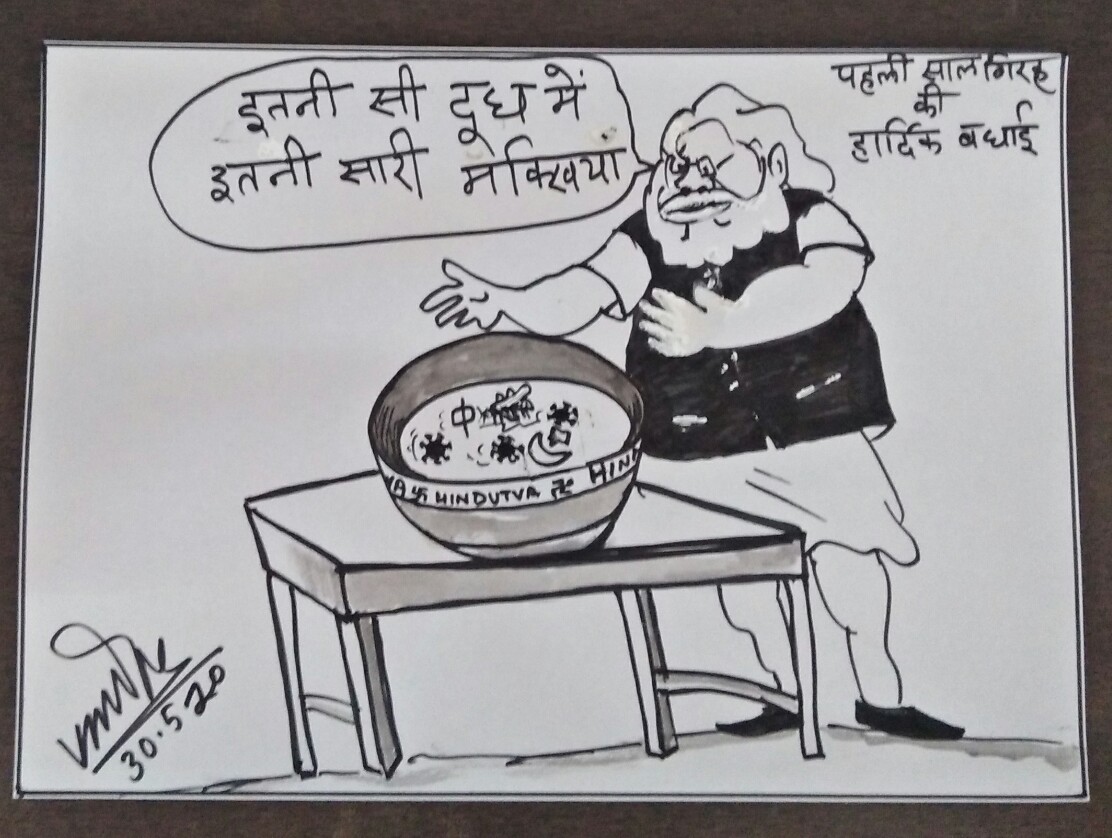 इतनी सी दूध में
इतनी सारी मक्खियां
पहली सालगिरह
की
हार्दिक बधाई
HINDUTVA HIND
30.5.20